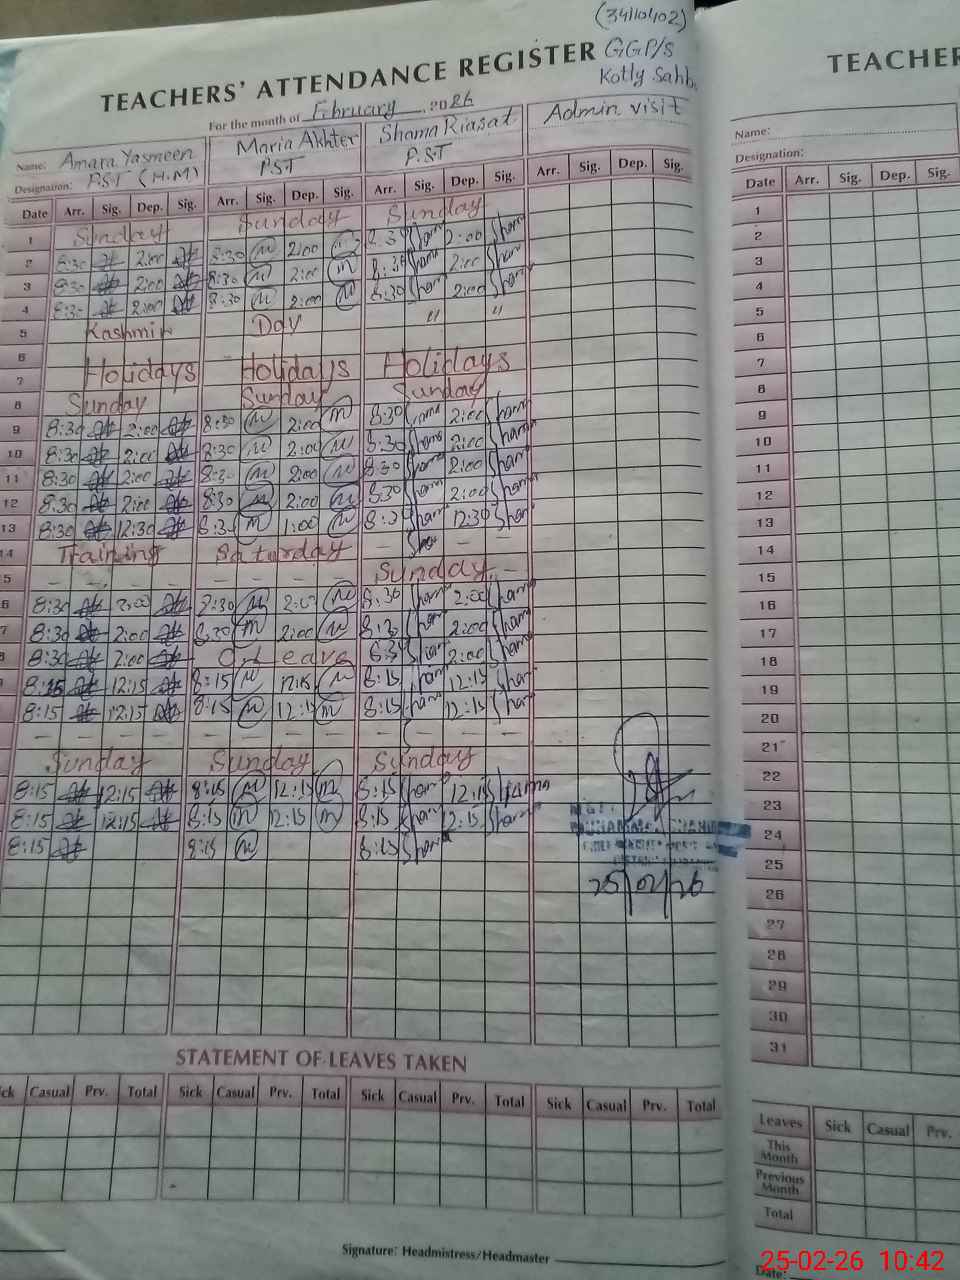 (34110402)
TEACHERS' ATTENDANCE REGISTER GGP/S
Kotly Sahb
For the month of February, 2026
Name: Amara Yasmeen Maria Akhter Shama Riasat Admin visit
Designation: P.S.T (H.M) P.ST P.S.T
Date Arr. Sig. Dep. Sig. Arr. Sig. Dep. Sig. Arr. Sig. Dep. Sig. Arr. Sig. Dep. Sig.
1 Sunday Sunday Sunday
2 8:30 2:00 8:30 m 2:00 m 8:30 Sham 2:00 Sham
3 8:30 2:00 8:30 m 2:00 m 8:30 Sham 2:00 Sham
4 8:30 2:00 8:30 m 2:00 m 8:30 Sham 2:00 Sham
5 Kashmir Day " "
6
7 Holidays Holidays Holidays
8 Sunday Sunday Sunday
9 8:30 2:00 8:30 m 2:00 m 8:30 Shama 2:00 Shama
10 8:30 2:00 8:30 m 2:00 m 8:30 Sham 2:00 Sham
11 8:30 2:00 8:30 m 2:00 m 8:30 Sham 2:00 Sham
12 8:30 2:00 8:30 m 2:00 m 8:30 Sham 2:00 Shama
13 8:30 12:30 8:30 m 1:00 m 8:30 Sham 12:30 Sham
14 Training Saturday - Sha - -
5 - - - - - - - - Sunday
6 8:30 2:00 8:30 m 2:00 m 8:30 Sham 2:00 Sham
7 8:30 2:00 8:30 m 2:00 m 8:30 Sham 2:00 Sham
8 8:30 2:00 On Leave 8:30 Sham 2:00 Sham
8:15 12:15 8:15 m 12:15 m 8:15 Sham 12:15 Sham
8:15 12:15 8:15 m 12:15 m 8:15 Sham 12:15 Sham
- - - - - - - - - - -
Sunday Sunday Sunday
8:15 12:15 8:15 m 12:15 m 8:15 Sham 12:15 Shama
8:15 12:15 8:15 m 12:15 m 8:15 Sham 12:15 Sham
8:15 8:15 m 8:15 Shama
25/02/26
STATEMENT OF LEAVES TAKEN
ck Casual Prv. Total Sick Casual Prv. Total Sick Casual Prv. Total Sick Casual Prv. Total
Signature: Headmistress/Headmaster
TEACHER
Name:
Designation:
Date Arr. Sig. Dep. Sig.
1
2
3
4
5
6
7
8
9
10
11
12
13
14
15
16
17
18
19
20
21
22
23
24
25
26
27
28
29
30
31
Leaves Sick Casual Prv.
This Month
Previous Month
Total
Date:
25-02-26 10:42